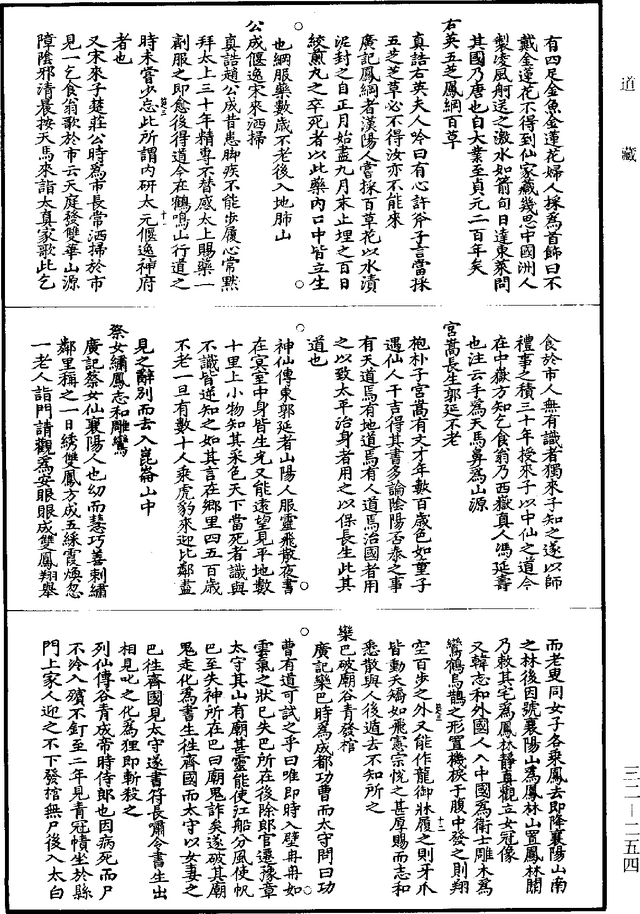 道藏
有四足金魚金蓮花婦人採為首飾曰不
戴金蓮花不得到仙家藏幾思中國洲人
製凌風舸送之激水如箭旬日達東萊問
其國乃唐也自大業至貞元二百年矣
右英五芝鳳綱百草
真誥右英夫人吟曰有心許斧子言當採
五芝芝草必不得汝亦不能來
廣記鳳綱者漢陽人嘗採百草花以水漬
泥封之自正月始盡九月末止埋之百日
絞煎丸之卒死者以此藥內口中皆立生
也綱服藥數歲不老後入地肺山
公成偃逸宋來洒掃
真誥趙公成昔患脚疾不能步履心常黙
拜太上三十年精專不替感太上賜藥一
劑服之即愈後得道今在鶴鳴山行道之
時未嘗少忘此所謂內研太元偃逸神府
者也
又宋來子楚莊公時為市長常洒掃於市
見一乞食翁歌於市云天庭發雙華山源
障陰邪清晨按天馬來詣太真家歌此乞
食於市人無有識者獨來子知之遂以師
禮事之積三十年授來子以中仙之道今
在中嶽方知乞食翁乃西嶽真人馮延壽
也注云手為天馬鼻為山源
宮嵩長生郭延不老
抱朴子宮嵩有文才年數百歲色如童子
遇仙人干吉得其書多論陰陽否泰之事
有天道焉有地道焉有人道焉治國者用
之以致太平治身者用之以保長生此其
道也
神仙傳東郭延者山陽人服靈飛散夜書
在冥室中身皆生光又能遠望見平地數
十里上小物知其采色天下當死者識與
不識皆逆知之如其言在鄉里四五百歲
不老一旦有數十人乘虎豹來迎比鄰盡
見之辭別而去入崑崙山中
蔡女繡鳳志和雕鸞
廣記蔡女仙襄陽人也幼而慧巧善刺繡
鄰里稱之一日綉雙鳳方成五綵霞煥忽
一老人詣門請觀為安眼眼成雙鳳翔舉
而老叟同女子各乘鳳去即降襄陽山南
之林後因號襄陽山為鳳林山置鳳林關
乃敕其宅為鳳林靜真觀立女冠像
又韓志和外國人入中國為衛士雕木為
鸞鶴烏鵲之形置機捩于腹中發之則翔
空百步之外又能作龍御牀履之則牙爪
皆動夭矯如飛憲宗悅之甚厚賜而志和
悉散與人後遁去不知所之
欒巴破廟谷青發棺
廣記欒巴時為成都功曹而太守問曰功
曹有道可試之乎曰唯即時入壁冉冉如
雲氣之狀巴失巴所在後除郎官遷豫章
太守其山有廟甚靈能使江船分風使帆
巴至失神所在巴曰廟鬼詐矣遂破其廟
鬼走化為書生往齊國而太守以女妻之
巴往齊國見太守遂書符長嘯令書生出
相見叱之化為狸即斬殺之
列仙傳谷青成帝時侍郎也因病死而尸
不冷入殯不釘至二年見青冠幘坐於縣
門上家人迎之不下發棺無尸後入太白
三二—二五四